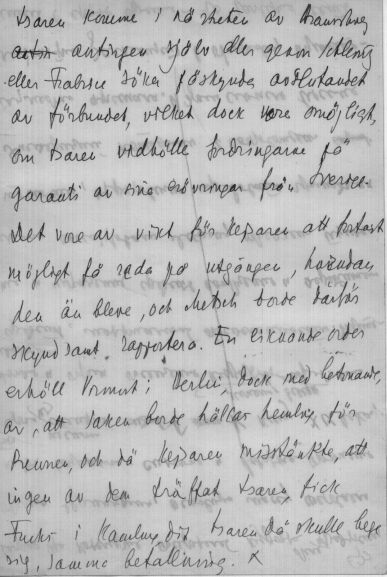 tsaren komme i närheten av Braunschweig
antingen själv eller genom Schleinitz
eller söka påskynda avslutandet
av förbundet, vilket dock vore omöjligt,
om tsaren vidhölle fordringarna på
garanti av sina erövringar från Sverige.
Det vore av vikt för kejsaren att fortast
möjligt få reda på utgången, hurudan
den än bleve, och Metsch borde därför
skyndsamt rapportera. En liknande order
erhöll i Berlin, dock med betonande
av, att saken borde hållas hemlig för
Preussen, och då kejsaren misstänkte, att
ingen av dem träffat tsaren, fick
i Hamburg, dit tsaren då skulle bege
sig, samma befallning. x